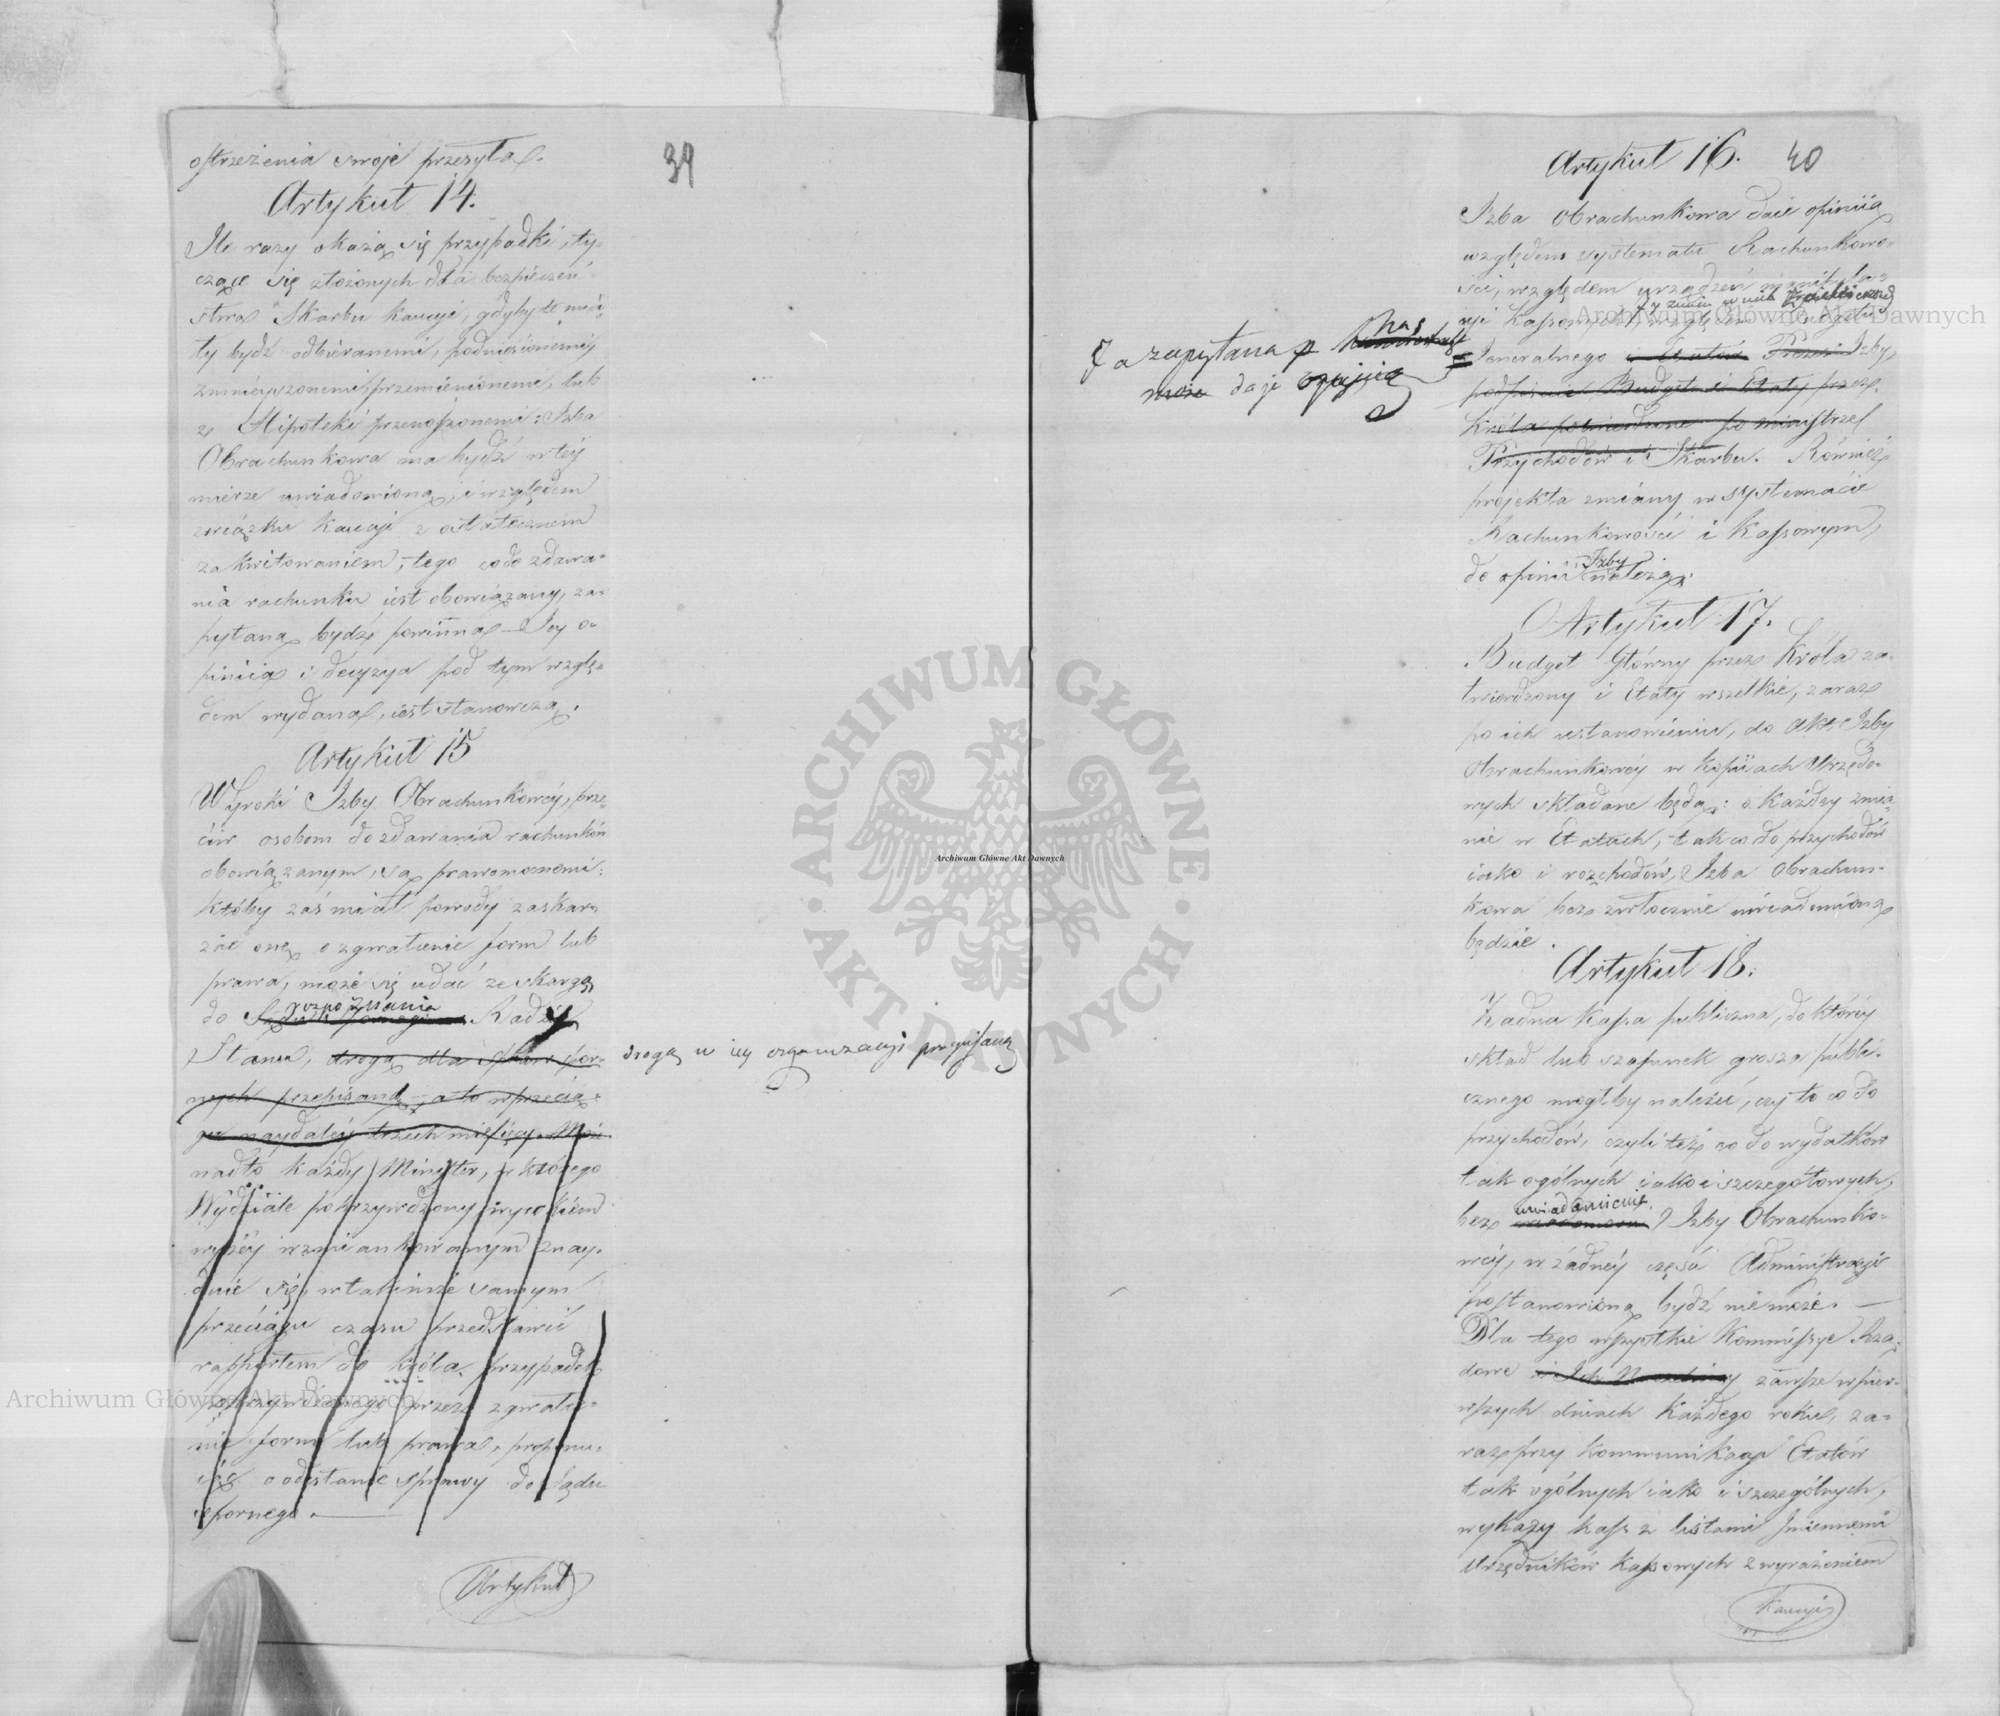 ostrzeżenia swoje przesyła.
39
Artykuł 14.
Ile razy okażą się przypadki, ty-
czące się złożonych dla bezpieczeń-
stwa Skarbu kaucji, gdyby te mia-
ły bydź odbieranemi, podniesionemi,
zmniejszonemi, przemienionemi, lub
z Hipoteki przenoszonemi: Izba
Obrachunkowa ma bydź w tej
mierze uwiadomiona, i względem
związku kaucji z ostatecznem
zakwitowaniem, tego co do zdawa-
nia rachunku iest obowiązany, za-
pytaną bydź powinna — Jey o-
pinia i decyzya pod tym wzglę-
dem wydana, iest stanowczą.
Artykuł 15
Wyroki Izby Obrachunkowey, prze-
ciw osobom do zdawania rachunków
obowiązanym, są prawomocnemi:
któby zaś miał powody zaskar-
żać one o zgwałcenie form lub
prawa, może się udać ze skargą
rozpoznania
do Rady
Stanu, drogą dla spraw spor- drogą w iey organizacji przepisaną
nych przepisaną, a to w przecią-
gu naydaley trzech miesięcy.
nadto każdy Minister, w którego
Wydziale pokrzywdzony wyrokiem
wyżey wzmiankowanym znay-
duie się, w takimże samym
przeciągu czasu przedstawić
rapportem do Króla, przypadek
pokrzywdzonego przez zgwałce-
nie form lub prawa, proponu-
iąc o odesłanie sprawy do Sądu
spornego.
Artykuł
Artykuł 16.
40
Izba Obrachunkowa daie opinią
względem systematu Rachunkowo-
ści, względem urządzeń manipula-
cji Kassowych, względem
Jeneralnego i Etatów Izby,
Ja zapytana daje opinią
podpisuie Budget i Etaty przez
Króla potwierdzone po ministrze
Przychodów i Skarbu. Również
projekta zmiany w systemacie
Rachunkowości i Kassowym,
do opinii Izby należą.
Artykuł 17.
Budget Główny przez Króla za-
twierdzony i Etaty wszelkie, zaraz
po ich ustanowieniu, do Akt Izby
Obrachunkowey w kopiiach Urzędo-
wych składane będą: o każdey zmia-
nie w Etatach, tak co do przychodów
iako i rozchodów, Izba Obrachun-
kowa bezzwłocznie uwiadomioną
będzie.
Artykuł 18.
Żadna Kassa publiczna, do którey
skład lub szafunek grosza publi-
cznego mogłby należeć, czy to co do
przychodów, czyli też co do wydatków
tak ogólnych iako i szczegółowych,
uwiadomienia
bez Izby Obrachunko-
wey, w żadney części Administracji
postanowioną bydź nie może. —
Dla tego wszystkie Kommissye Rzą-
dowe zawsze w pier-
wszych dniach każdego roku, za-
raz przy kommunikacyi Etatów
tak ogólnych iako i szczególnych,
wykazy kass z listami Imiennemi
Urzędników kassowych z wyrażeniem
Kaucyi
Archiwum Główne Akt Dawnych
ARCHIWUM GŁÓWNE AKT DAWNYCH
Archiwum Główne Akt Dawnych
Archiwum Główne Akt Dawnych